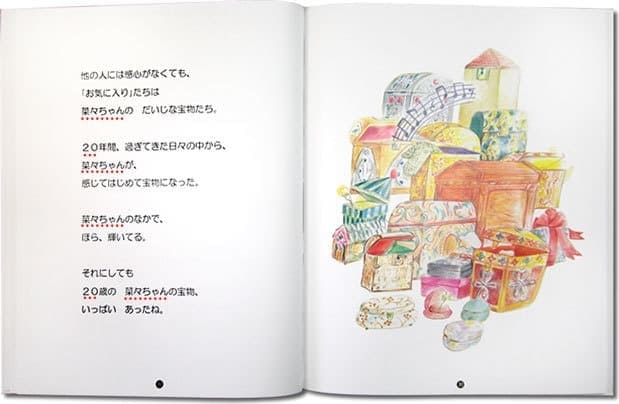 他の人には感心がなくても、
「お気に入り」たちは
菜々ちゃんの だいじな宝物たち。
20年間、過ぎてきた日々の中から、
菜々ちゃんが、
感じてはじめて宝物になった。
菜々ちゃんのなかで、
ほら、輝いてる。
それにしても
20歳の 菜々ちゃんの宝物、
いっぱい あったね。